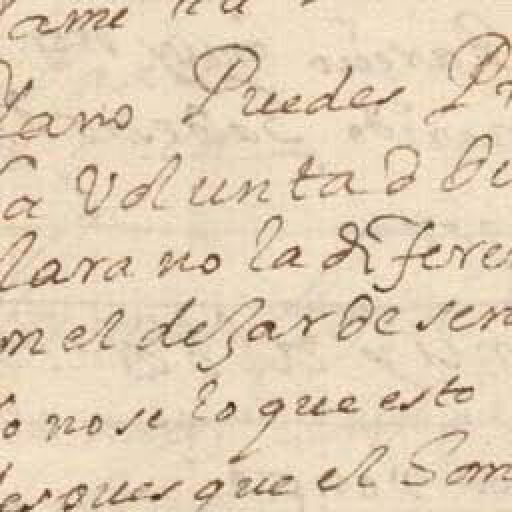 ame
lano Puedes
la Voluntad
lara no la diferen
en el dezar de sen
lo no se lo que esto
es ques que el Som